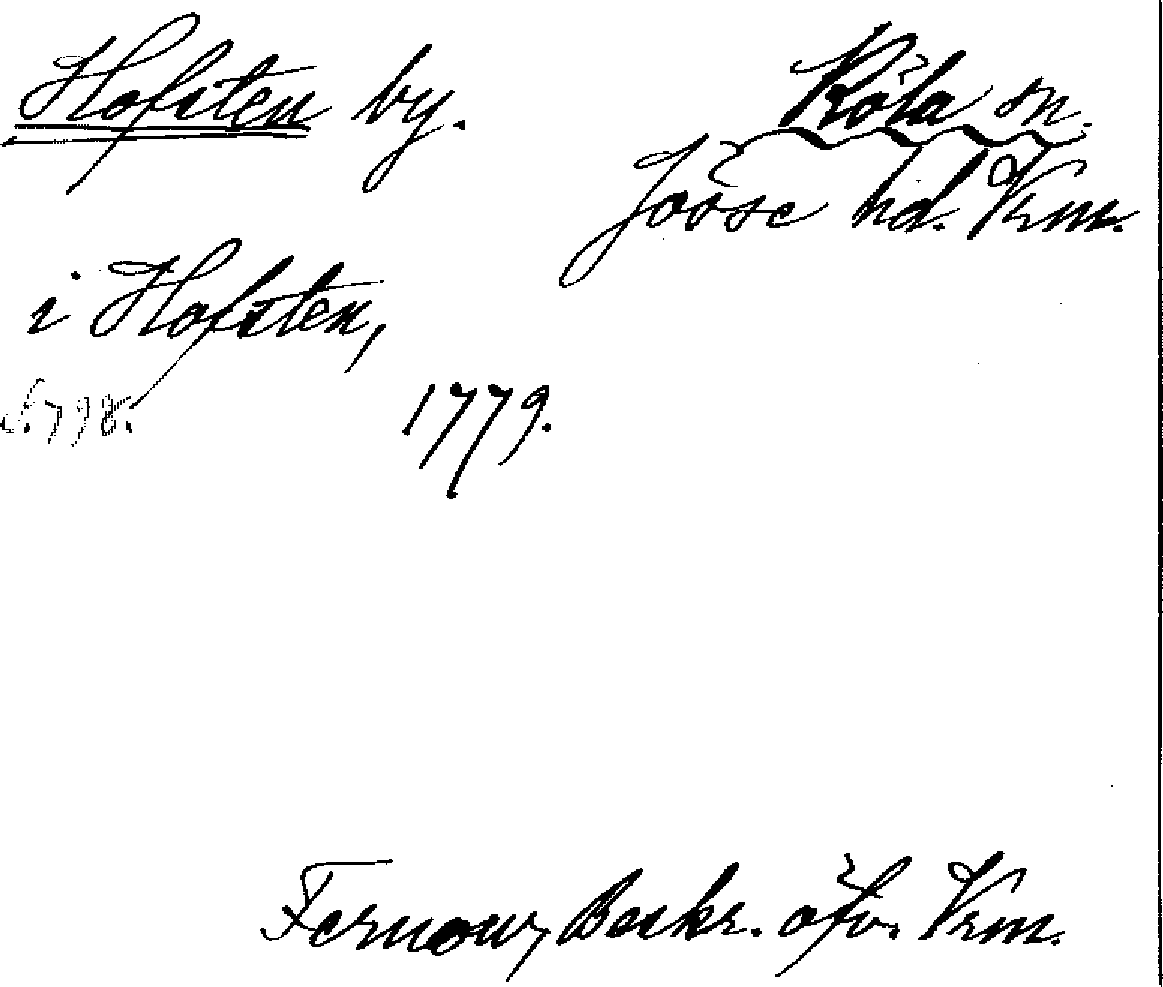 Hofsten by.
Köla sn.
Jösse hd. Vrm.
i Hofsten,
s. 798.
1779.
Fernow, Beskr. öfv. Vrm.